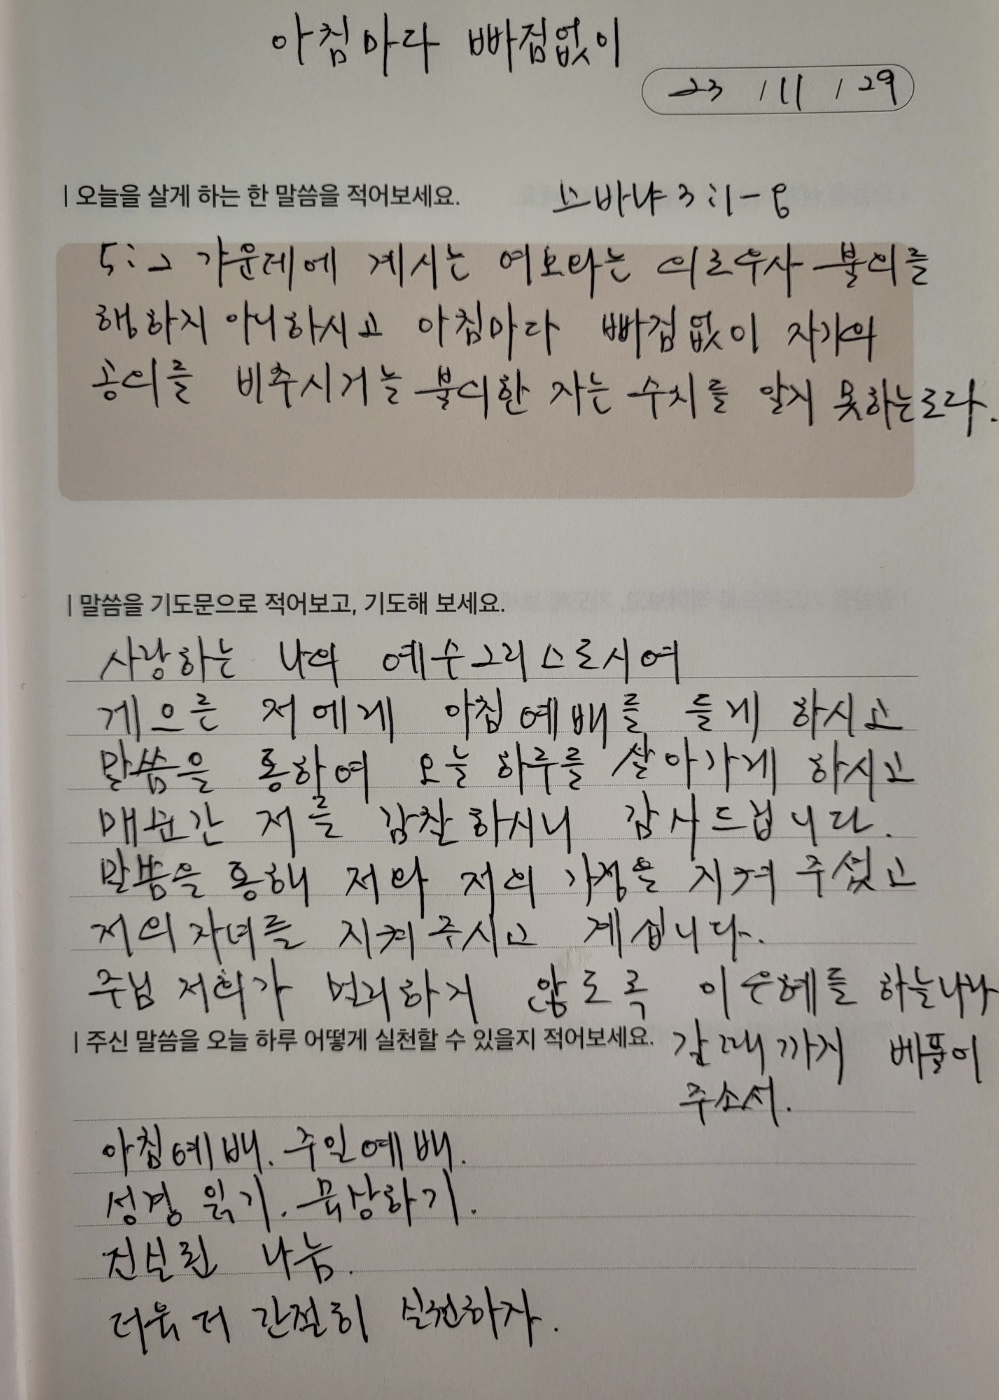 아침마다 빠짐없이
23 / 11 / 29
| 오늘을 살게 하는 한 말씀을 적어보세요.
스바냐 3:1-8
5: 그 가운데에 계시는 여호와는 의로우사 불의를
행하지 아니하시고 아침마다 빠짐없이 자기의
공의를 비추시거늘 불의한 자는 수치를 알지 못하는도다.
| 말씀을 기도문으로 적어보고, 기도해 보세요.
사랑하는 나의 예수그리스도시여
게으른 저에게 아침예배를 들게 하시고
말씀을 통하여 오늘 하루를 살아가게 하시고
매순간 저를 감찰하시니 감사드립니다.
말씀을 통해 저와 저의 가정을 지켜 주셨고
저의자녀를 지켜주시고 계십니다.
주님 저희가 멀리하지 않도록 이 은혜를 하늘나라
갈 때까지 베풀어
주소서.
| 주신 말씀을 오늘 하루 어떻게 실천할 수 있을지 적어보세요.
아침예배. 주일예배.
성경 읽기. 묵상하기.
진실된 나눔.
더욱 더 간절히 실천하자.